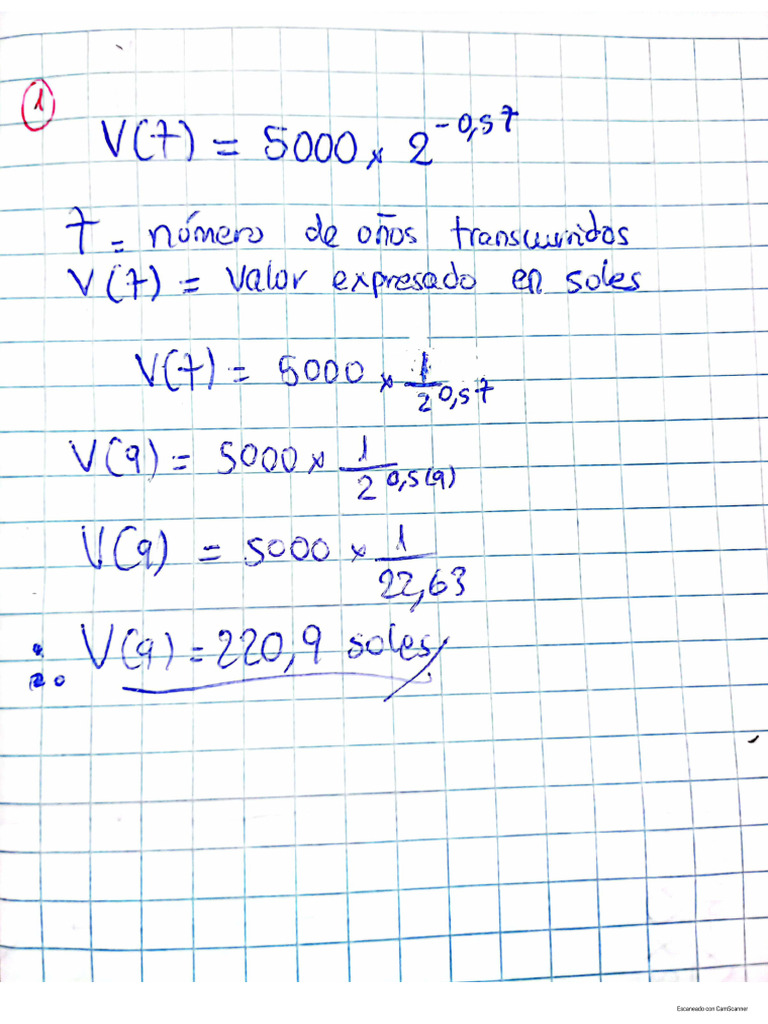 1
V(t) = 5000 × 2^-0,5t
t = número de años transcurridos
V(t) = Valor expresado en soles
V(t) = 5000 × 1/2^0,5t
V(9) = 5000 × 1/2^0,5(9)
V(9) = 5000 × 1/22,63
∴ V(9) = 220,9 soles
Escaneado con CamScanner